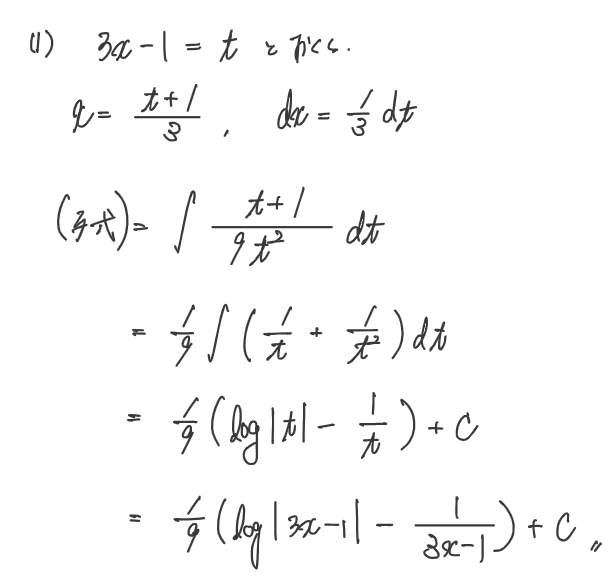 (1) 3x-1 = t とおくと.
x = (t+1)/3 , dx = 1/3 dt
(与式) = ∫ (t+1)/(9t²) dt
= 1/9 ∫ (1/t + 1/t²) dt
= 1/9 (log|t| - 1/t) + C
= 1/9 (log|3x-1| - 1/(3x-1)) + C 〃